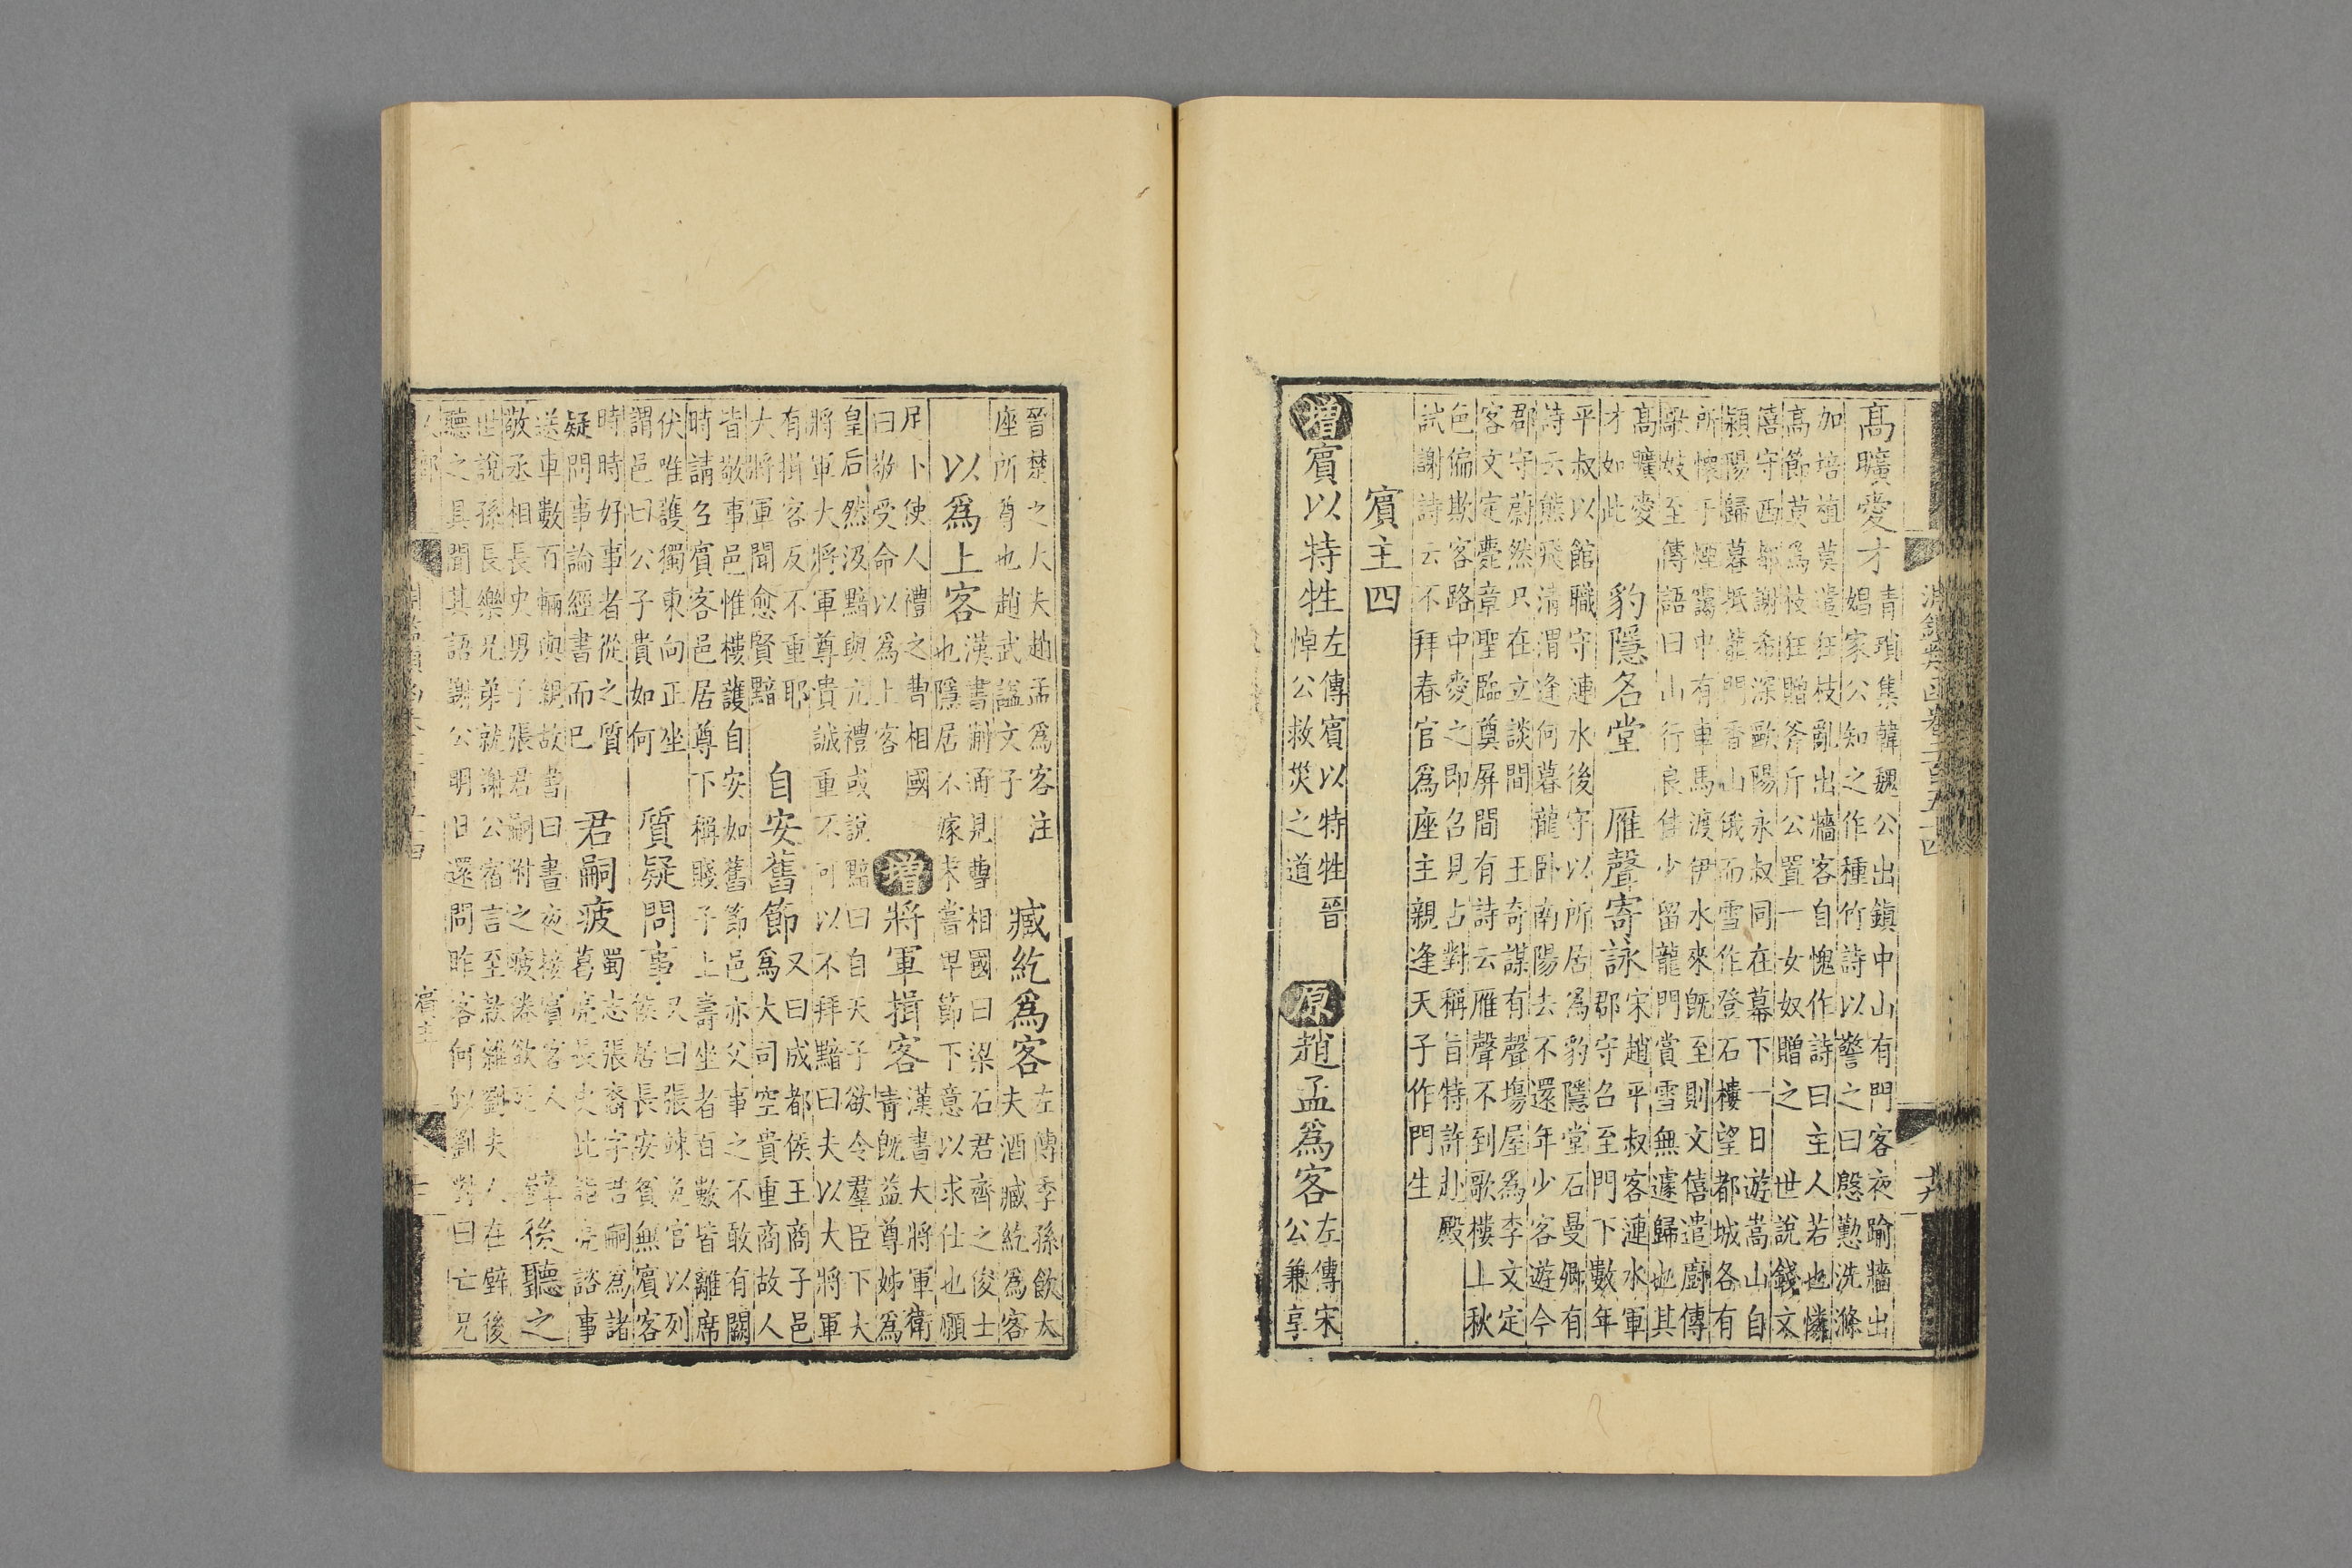 淵鑑類函卷二百五十四
高曠愛才
青瑣集韓魏公出鎮中山有門客夜踰牆出
娼家公知之作種竹詩以警之曰慇懃洗滌
加培植莫遣狂枝亂出牆客自愧作詩曰主人若也憐
高節莫為枝狂贈斧斤公置一女奴贈之 世說錢文
僖守西都謝希深歐陽永叔同在幕下一日遊嵩山自
潁陽歸暮抵龍門香山俄而雪作登石樓望都城各有
所懷于煙靄中有車馬渡伊水來旣至則文僖遣廚傳
歌妓至傳語曰山行良佳少留龍門賞雪無遽歸也其
高曠愛
才如此
豹隱名堂 雁聲寄詠
宋趙平叔客漣水軍
郡守召至門下數年
平叔以館職守漣水後守以所居為豹隱堂石曼卿有
詩云熊飛清渭逢何暮龍卧南陽去不還年少客遊今
郡守蔚然只在立談間 王奇謀有聲塲屋為李文定
客文定薨章聖臨奠屏間有詩云雁聲不到歌樓上秋
色偏欺客路中愛之即召見占對稱旨特許赴殿
試謝詩云不拜春官為座主親逢天子作門生
賓主四
增賓以特牲
左傳賓以特牲晉
悼公救災之道
原趙孟為客
左傳宋
公兼享
晉楚之大夫趙孟為客注
座所尊也趙武謚文子
臧紇為客
左傳季孫飲大
夫酒臧紇為客
以為上客
漢書蒯通見曹相國曰梁石君齊之俊士
也隱居不嫁未嘗卑節下意以求仕也願
足下使人禮之曹相國
曰敬受命以為上客
增將軍揖客
漢書大將軍衛
青旣益尊姊為
皇后然汲黯與亢禮或說黯曰自天子欲令羣臣下大
將軍大將軍尊貴誠重不可以不拜黯曰夫以大將軍
有揖客反不重耶
大將軍聞愈賢黯
自安舊節
又曰成都侯王商子邑
為大司空貴重商故人
皆敬事邑惟樓護自安如舊節邑亦父事之不敢有闕
時請召賓客邑居尊下稱賤子上壽坐者百數皆離席
伏唯護獨東向正坐
謂邑曰公子貴如何
質疑問事
又曰張竦免官以列
侯居長安貧無賓客
時時好事者從之質
疑問事論經書而已
君嗣疲
蜀志張裔字君嗣為諸
葛亮長史北詣亮諮事
送車數百輛與親故書曰晝夜接賓客人
敬丞相長史男子張君嗣附之疲倦欲死
壁後聽之
世說孫長樂兄弟就謝公宿言至款雜劉夫人在壁後
聽之具聞其語謝公明日還問昨客何似劉對曰亡兄
賓主